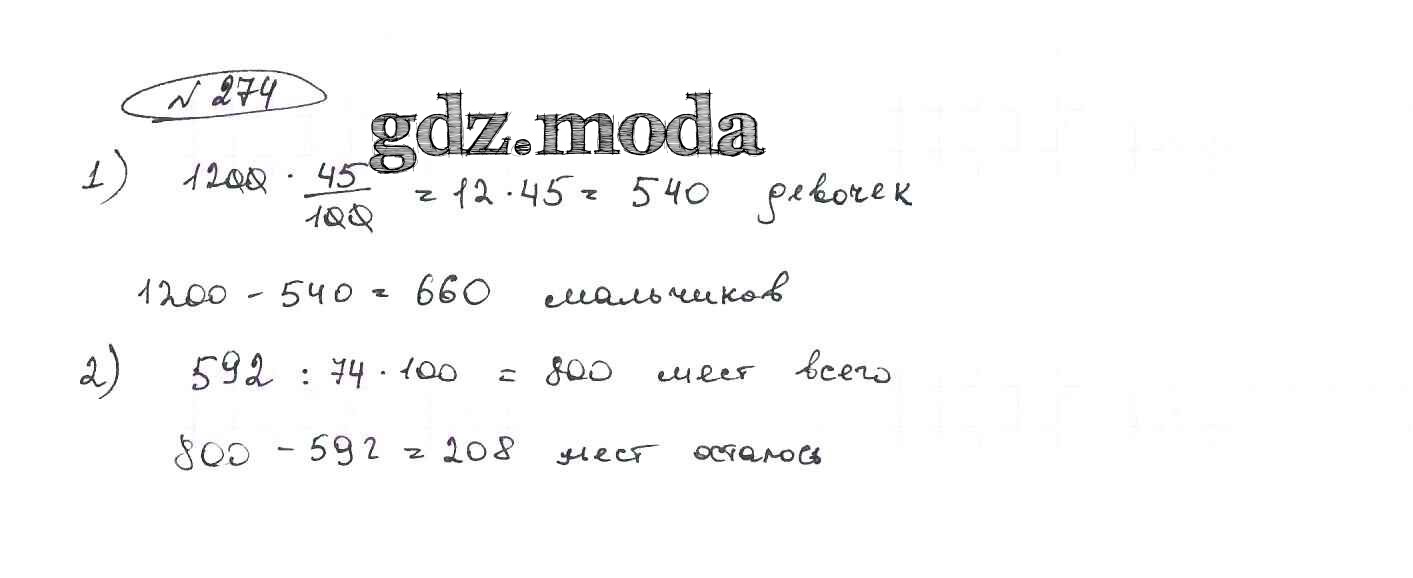 № 274
gdz.moda
1) 1200 · 45/100 = 12 · 45 = 540 девочек
1200 - 540 = 660 мальчиков
2) 592 : 74 · 100 = 800 мест всего
800 - 592 = 208 мест осталось